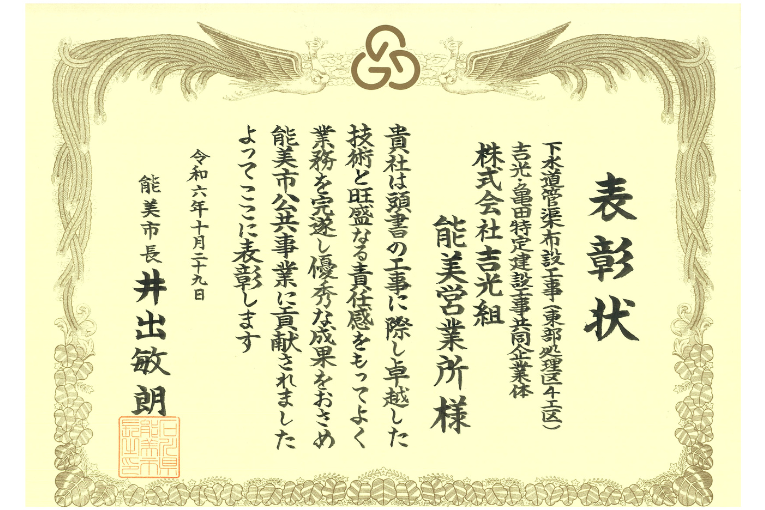 表彰状
下水道管渠布設工事(東部処理区4工区)
吉光・亀田特定建設工事共同企業体
株式会社吉光組
能美営業所様
貴社は頭書の工事に際し卓越した
技術と旺盛なる責任感をもってよく
業務を完遂し優秀な成果をおさめ
能美市公共事業に貢献されました
よってここに表彰します
令和六年十月二十九日
能美市長 井出敏朗